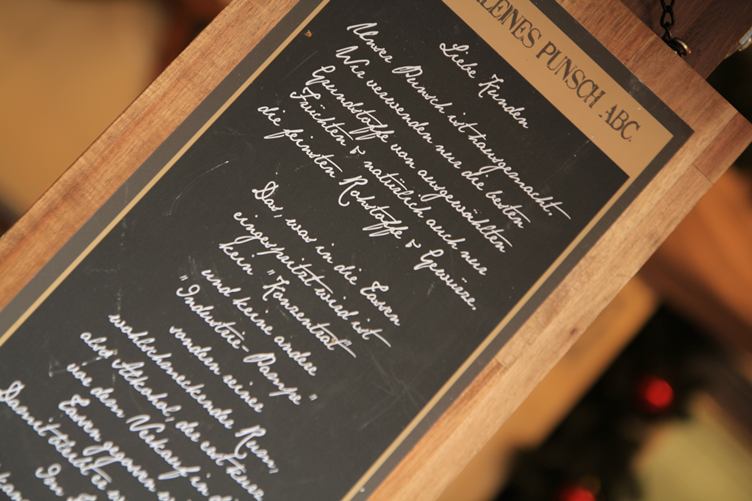 KLEINES PUNSCH ABC.
Liebe Kunden
Unser Punsch ist hausgemacht.
Wir verwenden nur die besten
Grundstoffe von ausgewählten
Früchten & natürlich auch nur
die feinsten Rohstoffe & Gewürze.
Das, was in die Tassen
eingespritzt wird ist
kein "Konzentrat
und keine andere
"Industrie-Pampe"
sondern reiner
wohlschmeckender Rum,
also Alkohol, die erst kurz
vor dem Verkauf in die
Tassen gegossen
Damit
Im